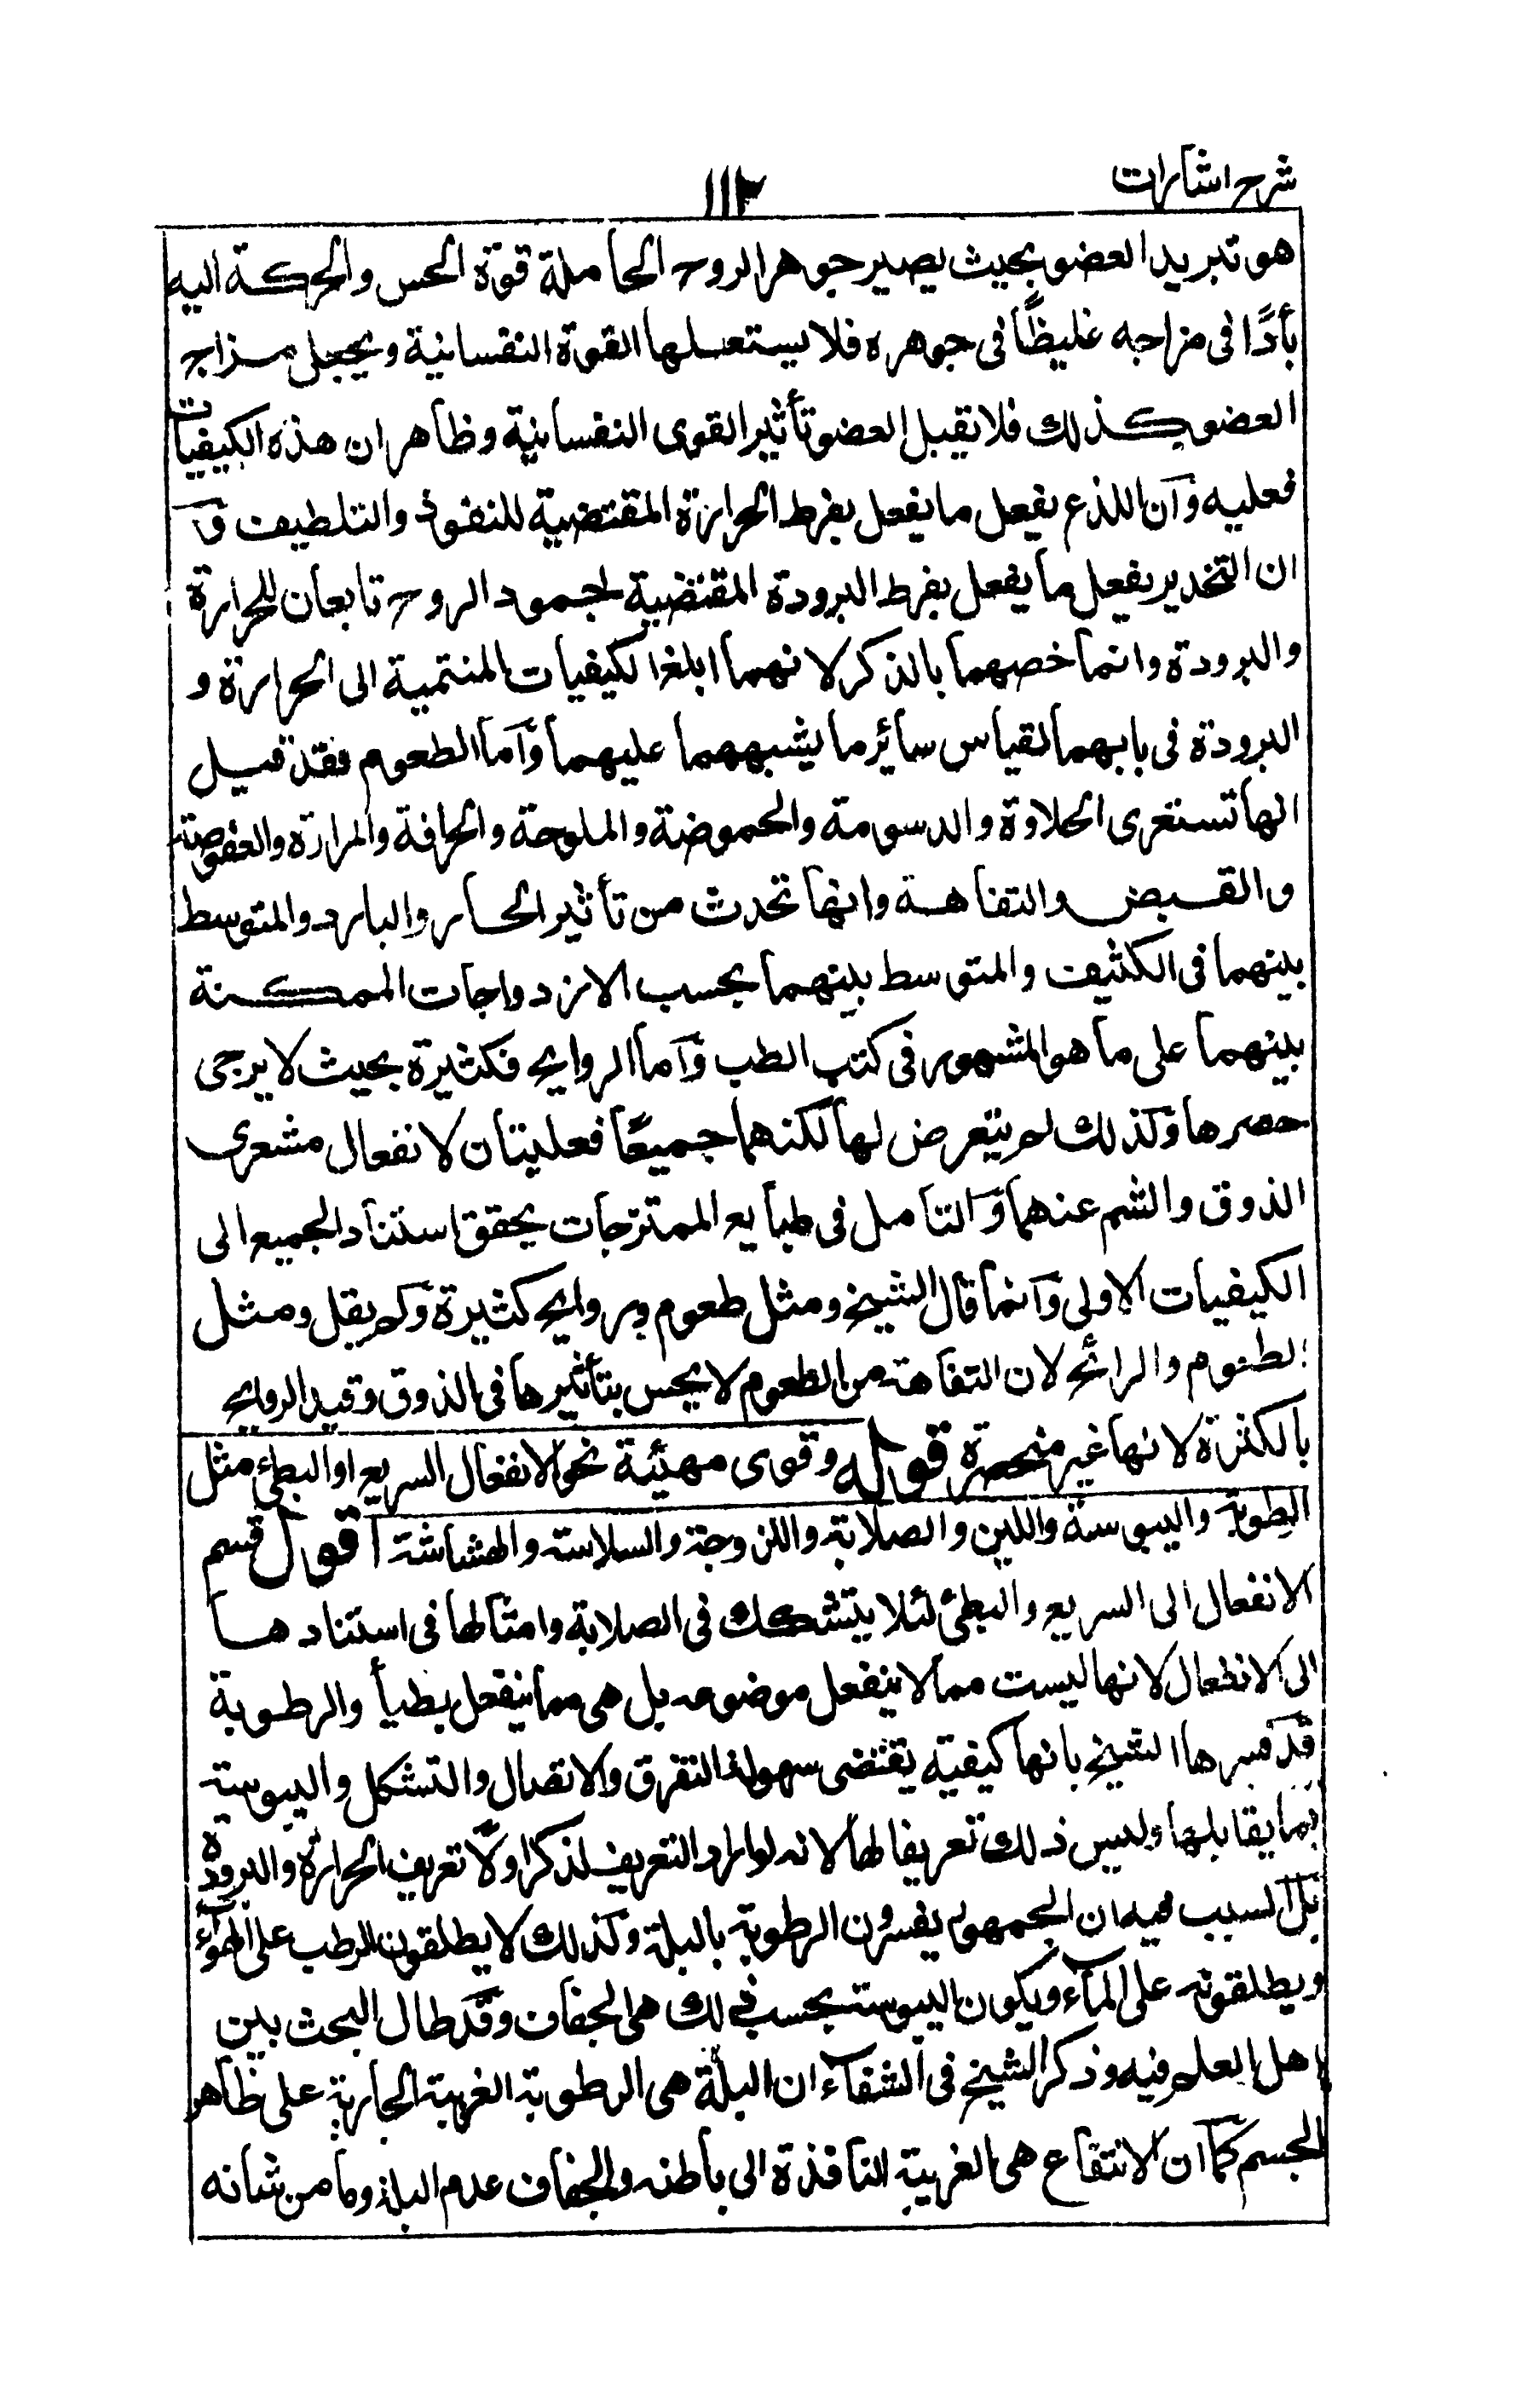 شرح اشارات
١١٢
هو تبريد العضو بحيث يصير جوهر الروح الحاملة قوة الحس والحركة اليه
باردًا فى مزاجه غليظًا فى جوهره فلا يستعملها القوة النفسانية ويجعل مزاج
العضو كذلك فلا يقبل العضو تأثير القوى النفسانية وظاهر ان هذه الكيفيات
فعليه وآن اللذع يفعل ما يفعل بفرط الحرارة المقتضية للنفوذ والتلطيف وآ
ان التخدير يفعل ما يفعل بفرط البرودة المقتضية لجمود الروح تابعان للحرارة
والبرودة وانما خصهما بالذكر لانهما ابلغ الكيفيات المنتمية الى الحرارة و
البرودة فى بابهما لقياس سائر ما يشبههما عليهما وآما الطعوم فقد قيل
انها تستغرى الحلاوة والدسومة والحموضة والملوحة والحرافة والمرارة والعفوصة
والقبض والتفاهة وانها تحدث من تأثير الحار والبارد والمتوسط
بينهما فى الكثيف والمتوسط بينهما بحسب الازدواجات الممكنة
بينهما على ما هو المشهور فى كتب الطب وآما الروايح فكثيرة بحيث لا يرجى
حصرها وكذلك لم يتعرض لها لكنهما جميعًا فعليتان لانفعال مشعرى
الذوق والشم عنهما والتامل فى طبايع الممتزجات يحقق استناد الجميع الى
الكيفيات الاولى وآنما قال الشيخ ومثل طعوم وروايح كثيرة ولم يقل ومثل
الطعوم والرائح لان التفاهة من الطعوم لا يحس بتأثيرها فى الذوق وقيد الروايح
بالكثرة لانها غير منحصرة قوله وقوى مهيئة نحو الانفعال السريع او البطئ مثل
الرطوبة واليبوسة واللين والصلابة واللزوجة والسلاسة والهشاشة اقول قسم
الانفعال الى السريع والبطئ لئلا يتشكك فى الصلابة وامثالها فى استنادها
الى الانفعال لانها ليست مما لا ينفعل موضوعه بل هى مما ينفعل بطيأ والرطوبة
قد فسرها الشيخ بانها كيفية يقتضى سهولة التفرق والاتصال والتشكل واليبوسية
بما يقابلها وليس ذلك تعريفا لها لانه لو اراد التعريف لذكر اولًا تعريف الحرارة والبرودة
بل السبب فيه ان الجمهور يفسرون الرطوبة بالبلة وكذلك لا يطلقون الرطب على الهوآء
ويطلقونه على المآء ويكون اليبوسة بحسب ذلك هى الجفاف وقد طال البحث بين
اهل العلم فيه وذكر الشيخ فى الشفآء ان البلة هى الرطوبة الغريبة الجارية على ظاهر
الجسم كما ان الانتقاع هى الغريبة النافذة الى باطنه والجفاف عدم البلة وما من شانه